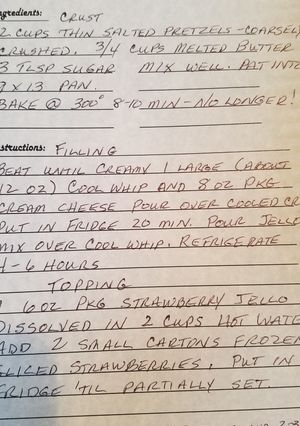 ngredients: CRUST
2 CUPS THIN SALTED PRETZELS - COARSELY
CRUSHED. 3/4 CUPS MELTED BUTTER
3 TLSP SUGAR MIX WELL. PAT INTO
9 X 13 PAN.
BAKE @ 300° 8-10 MIN - NO LONGER!
structions: FILLING
BEAT UNTIL CREAMY 1 LARGE (ABOUT
12 OZ) COOL WHIP AND 8 OZ PKG
CREAM CHEESE POUR OVER COOLED CR
PUT IN FRIDGE 20 MIN. POUR JELLO
MIX OVER COOL WHIP. REFRIGERATE
4-6 HOURS
TOPPING
1 6 OZ PKG STRAWBERRY JELLO
DISSOLVED IN 2 CUPS HOT WATE
ADD 2 SMALL CARTONS FROZEN
SLICED STRAWBERRIES. PUT IN
FRIDGE 'TIL PARTIALLY SET.